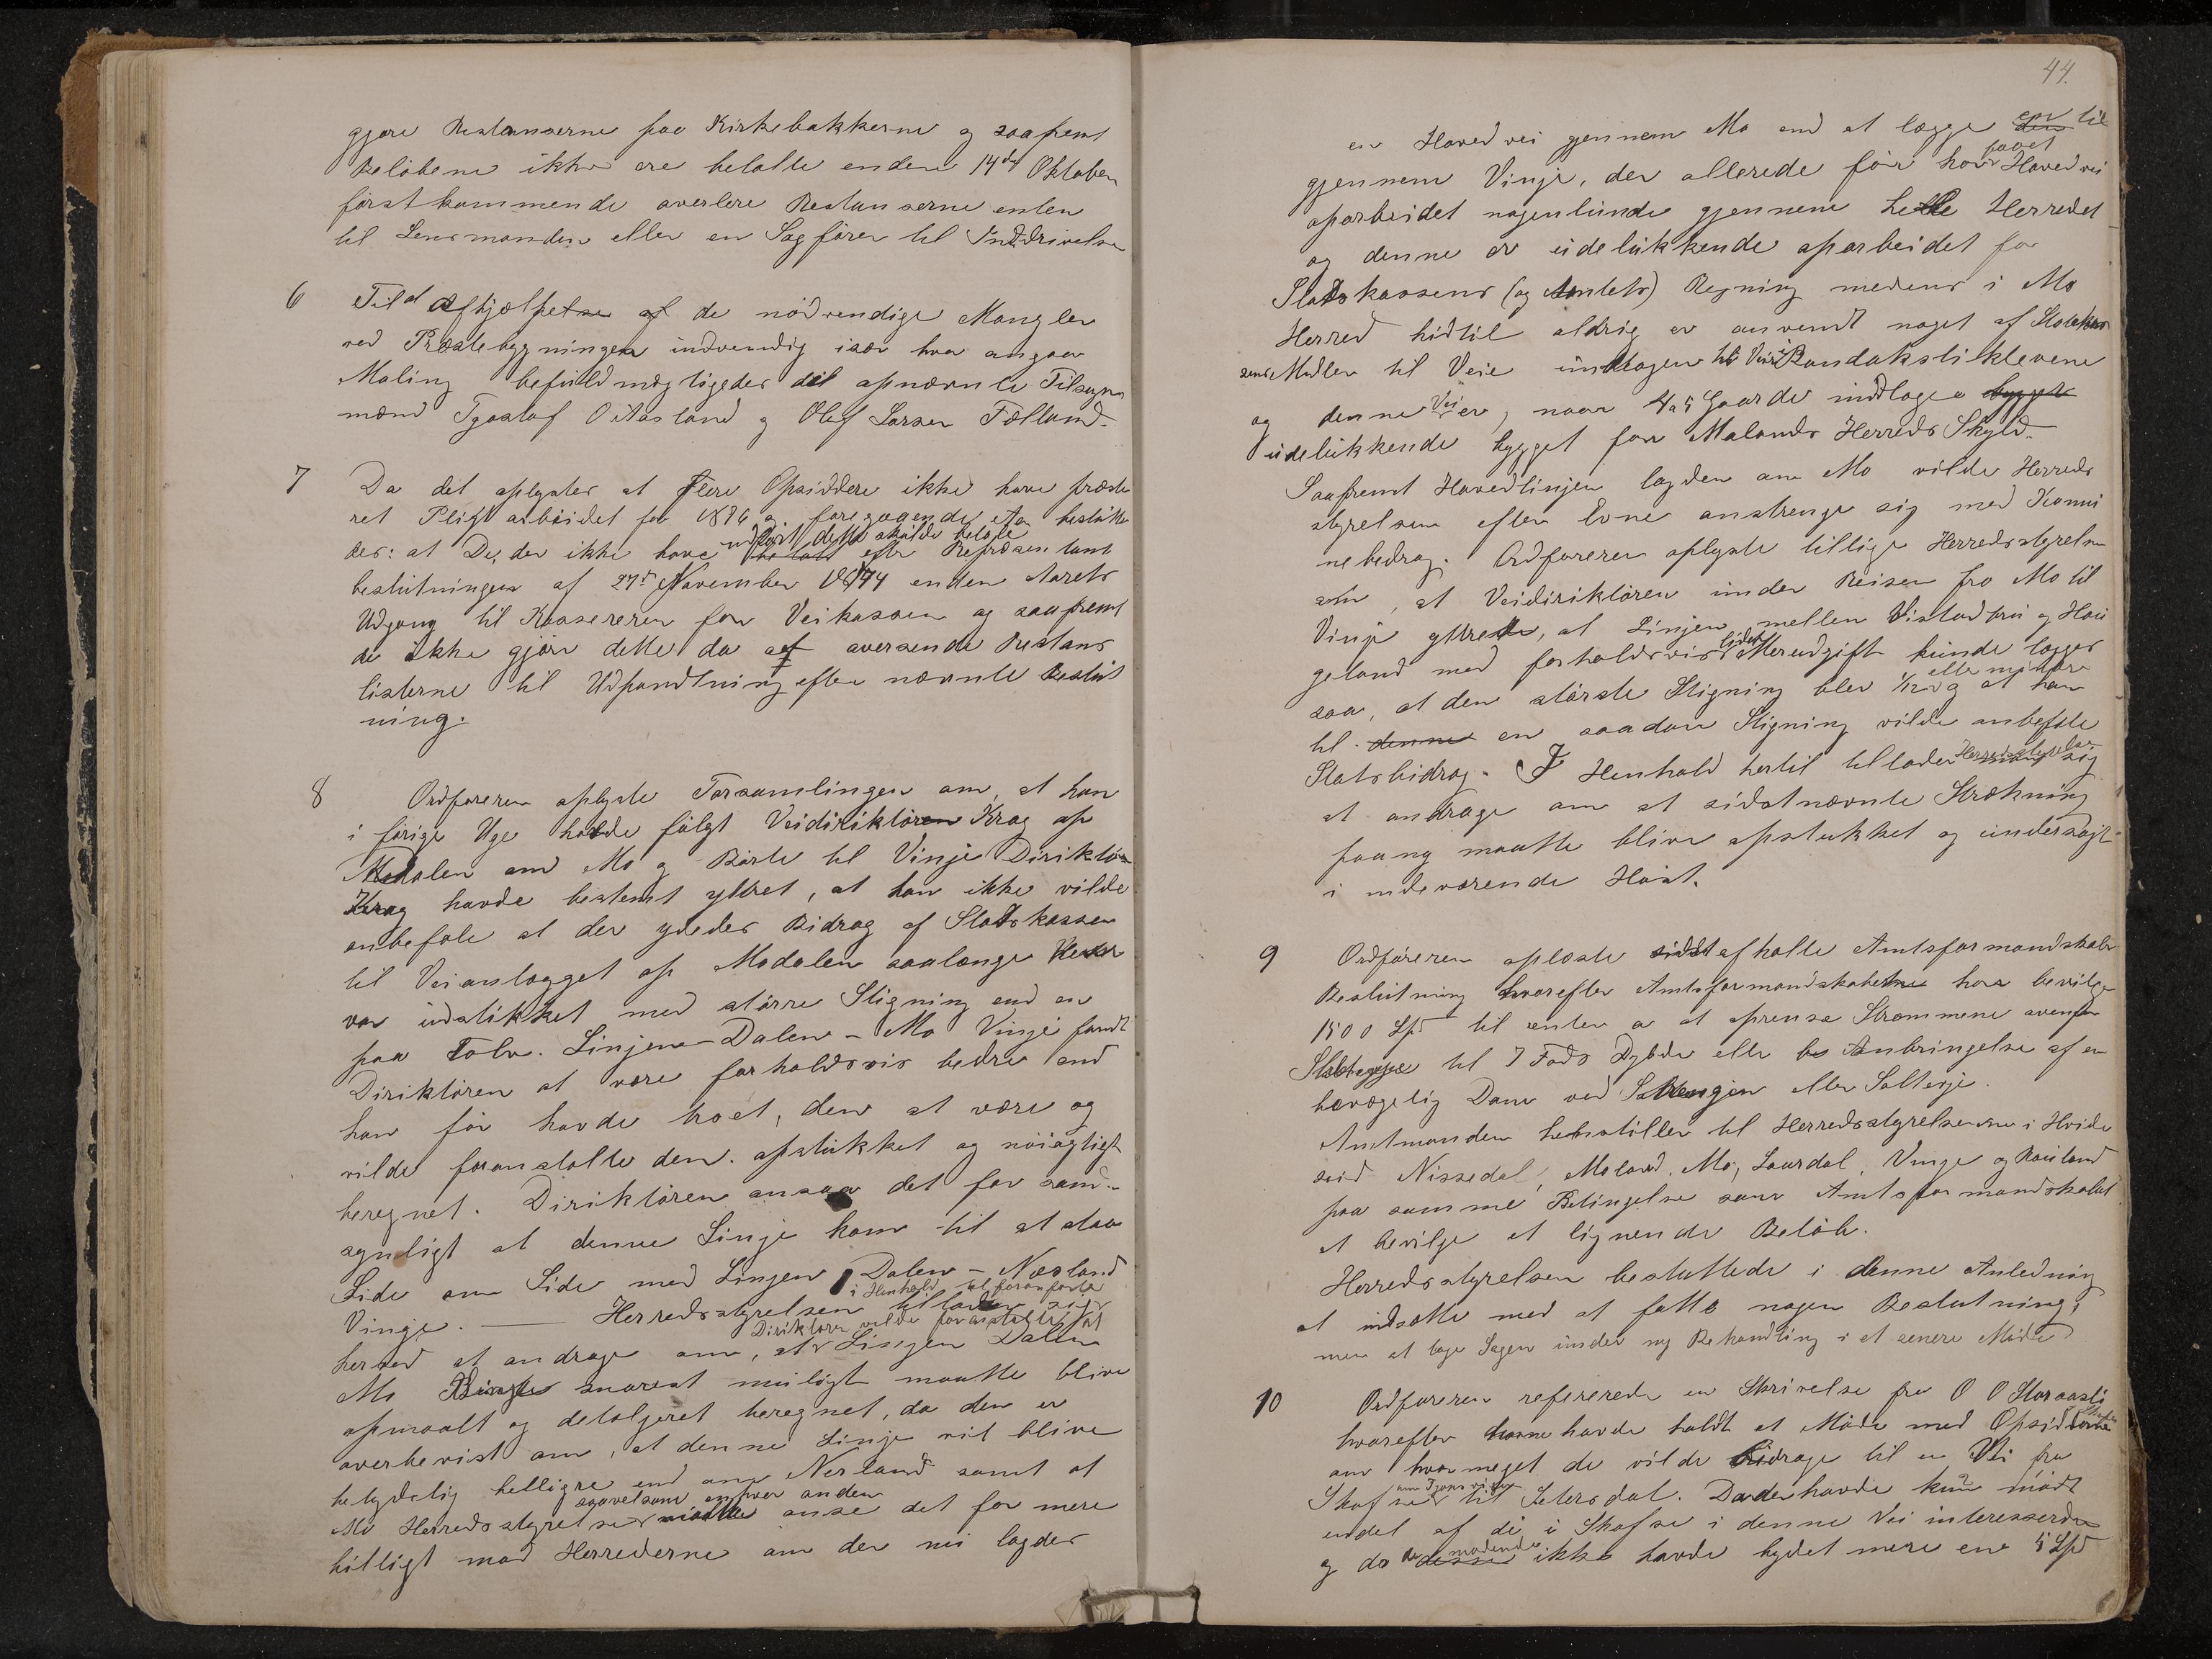 gjøre Restanserne paa Kirkebakkerne og saafremt
Beløbene ikke ere betalte enden 14de Oktober
førstkommende overlere Restanserne enten
til Lensmanden eller en Sagfører til Inddrivelse
6 Til Afhjælpelse af de nødvendige Mangler
ved Præstebygningen indvendig især hva angaar
Maling befuldmægtigedes det opnævnte Tilsyns
mænd Tgostof O Aasland og Olef Larsen Fælland.
7 Da det oplystes at flere Opsiddere ikke have præste
ret Pligtarbeidet for 1876 og foregaaende Aar beslutte
udført dette skulde betale
des: at De, der ikke have efter Repræsentant
beslutningen af 27de November 1874 enden Aarets
Udgang til Kassereren for Veikassen og saafremt
de ikke gjør dette da at oversende Restans
listerne til Udpandtning efter nævnte Beslut
ning.
8 Ordføreren oplyste Forsamlingen om, at han
i forige Uge havde fulgt Veidirektøren Krag op
Modalen om Mo og Børte til Vinje Direktør
Krag havde bestemt yttret, at han ikke vilde
anbefale at der ydedes Bidrag af Statskassen
til Veianlægget op Modalen saalænge
var udstikket med større Stigning end en
paa Tolv. Linjen Dalen - Mo Vinje fandt
Direktøren at være forholdsvis bedre end
han før havde troet, den at være og
vilde foranstalte den opstukket og nøiagtigt
beregnet. Direktøren ansaa det for sand-
synligt at denne Linje kom til at staa
Side om Side med Linjen Dalen - Næsland
i Henhold til foranførte
Vinje. — Herredsstyrelsen tillader sig
Direktøren vilde foranstalte at
herved at andrage om, at Linjen Dalen
Mo Vinje snarest muligt maatte blive
opmaalt og detaljeret beregnet, da den er
overbevist om, at denne Linje vil blive
betydelig billigre end om Nesland samt at
saavelsom enhver anden
Mo Herredsstyrelse maatte anse det for mere
billigt mod Herrederne om der nu lagdes
44.
en Hovedvei gjennem Mo end at lægge en til
faaet
gjennem Vinje, der allerede før har Hovedvei
oparbeidet nogenlunde gjennem hele Herredet
og denne er udelukkende oparbeidet for
Statskassens (og Amtets) Regning medens i Mo
Herred hidtil aldrig er anvendt noget af Statskas
sens Midler til Veie undtagen til Vei i Bandaksliklevene
og denne Vei er, naar 4 a 5 Gaarde undtages bygget
udelukkende bygget for Molands Herreds Skyld.
Saafremt Hovedlinjen lagdes om Mo vilde Herreds
styrelsen efter Evne anstrenge sig med Kommu
nebidrag. Ordføreren oplyste tillige Herredsstyrelsen
om, at Veidirektøren under Reisen fra Mo til
Vinje yttrede, at Linjen mellem Vistadbru og Hau
geland med forholdsvis liden Merudgift kunde lægges
eller mindre
saa, at den største Stigning blev 1/12 og at han
til denne en saadan Stigning vilde anbefale
Statsbidrag. I Henhold hertil tillader Herredsstyrelsen sig
at andrage om at sidstnævnte Strækning
paany maatte blive opstukket og undersøgt
i indeværende Høst.
9 Ordføreren oplæste sidst afholte Amtsformandskabs
Beslutning hvorefter Amtsformandskabet har bevilget
1500 Spd til enten a at oprense Strømmene ovenfor
til 7 Fods Dybde eller Anbringelse af en
bevægelig Dam ved eller Salterje.
Amtmanden henstiller til Herredsstyrelserne i Hvide
seid Nissedal, Moland, Mo, Laurdal, Vinje og Rauland
paa samme Betingelse som Amtsformandskabet
at bevilge et lignende Beløb.
Herredsstyrelsen besluttede i denne Anledning
at udsætte med at fatte nogen Beslutning,
men at tage Sagen under ny Behandling i et senere Møde
10 Ordføreren refererede en Skrivelse fra O O Storaasli
hvorefter denne havde holdt et Møde med Opsidderne
om hvormeget de vilde bidrage til en Vei fra
Skafse til Setersdal. Da der havde kun mødt
endel af de i Skafse i denne Vei interesserede
og da de mødende ikke havde bydet mere end 5 Spd